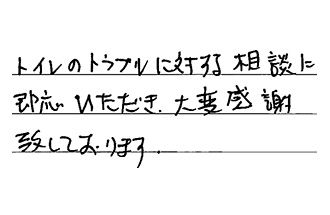 トイレのトラブルに対する相談に
即応いただき、大変感謝
致しております。